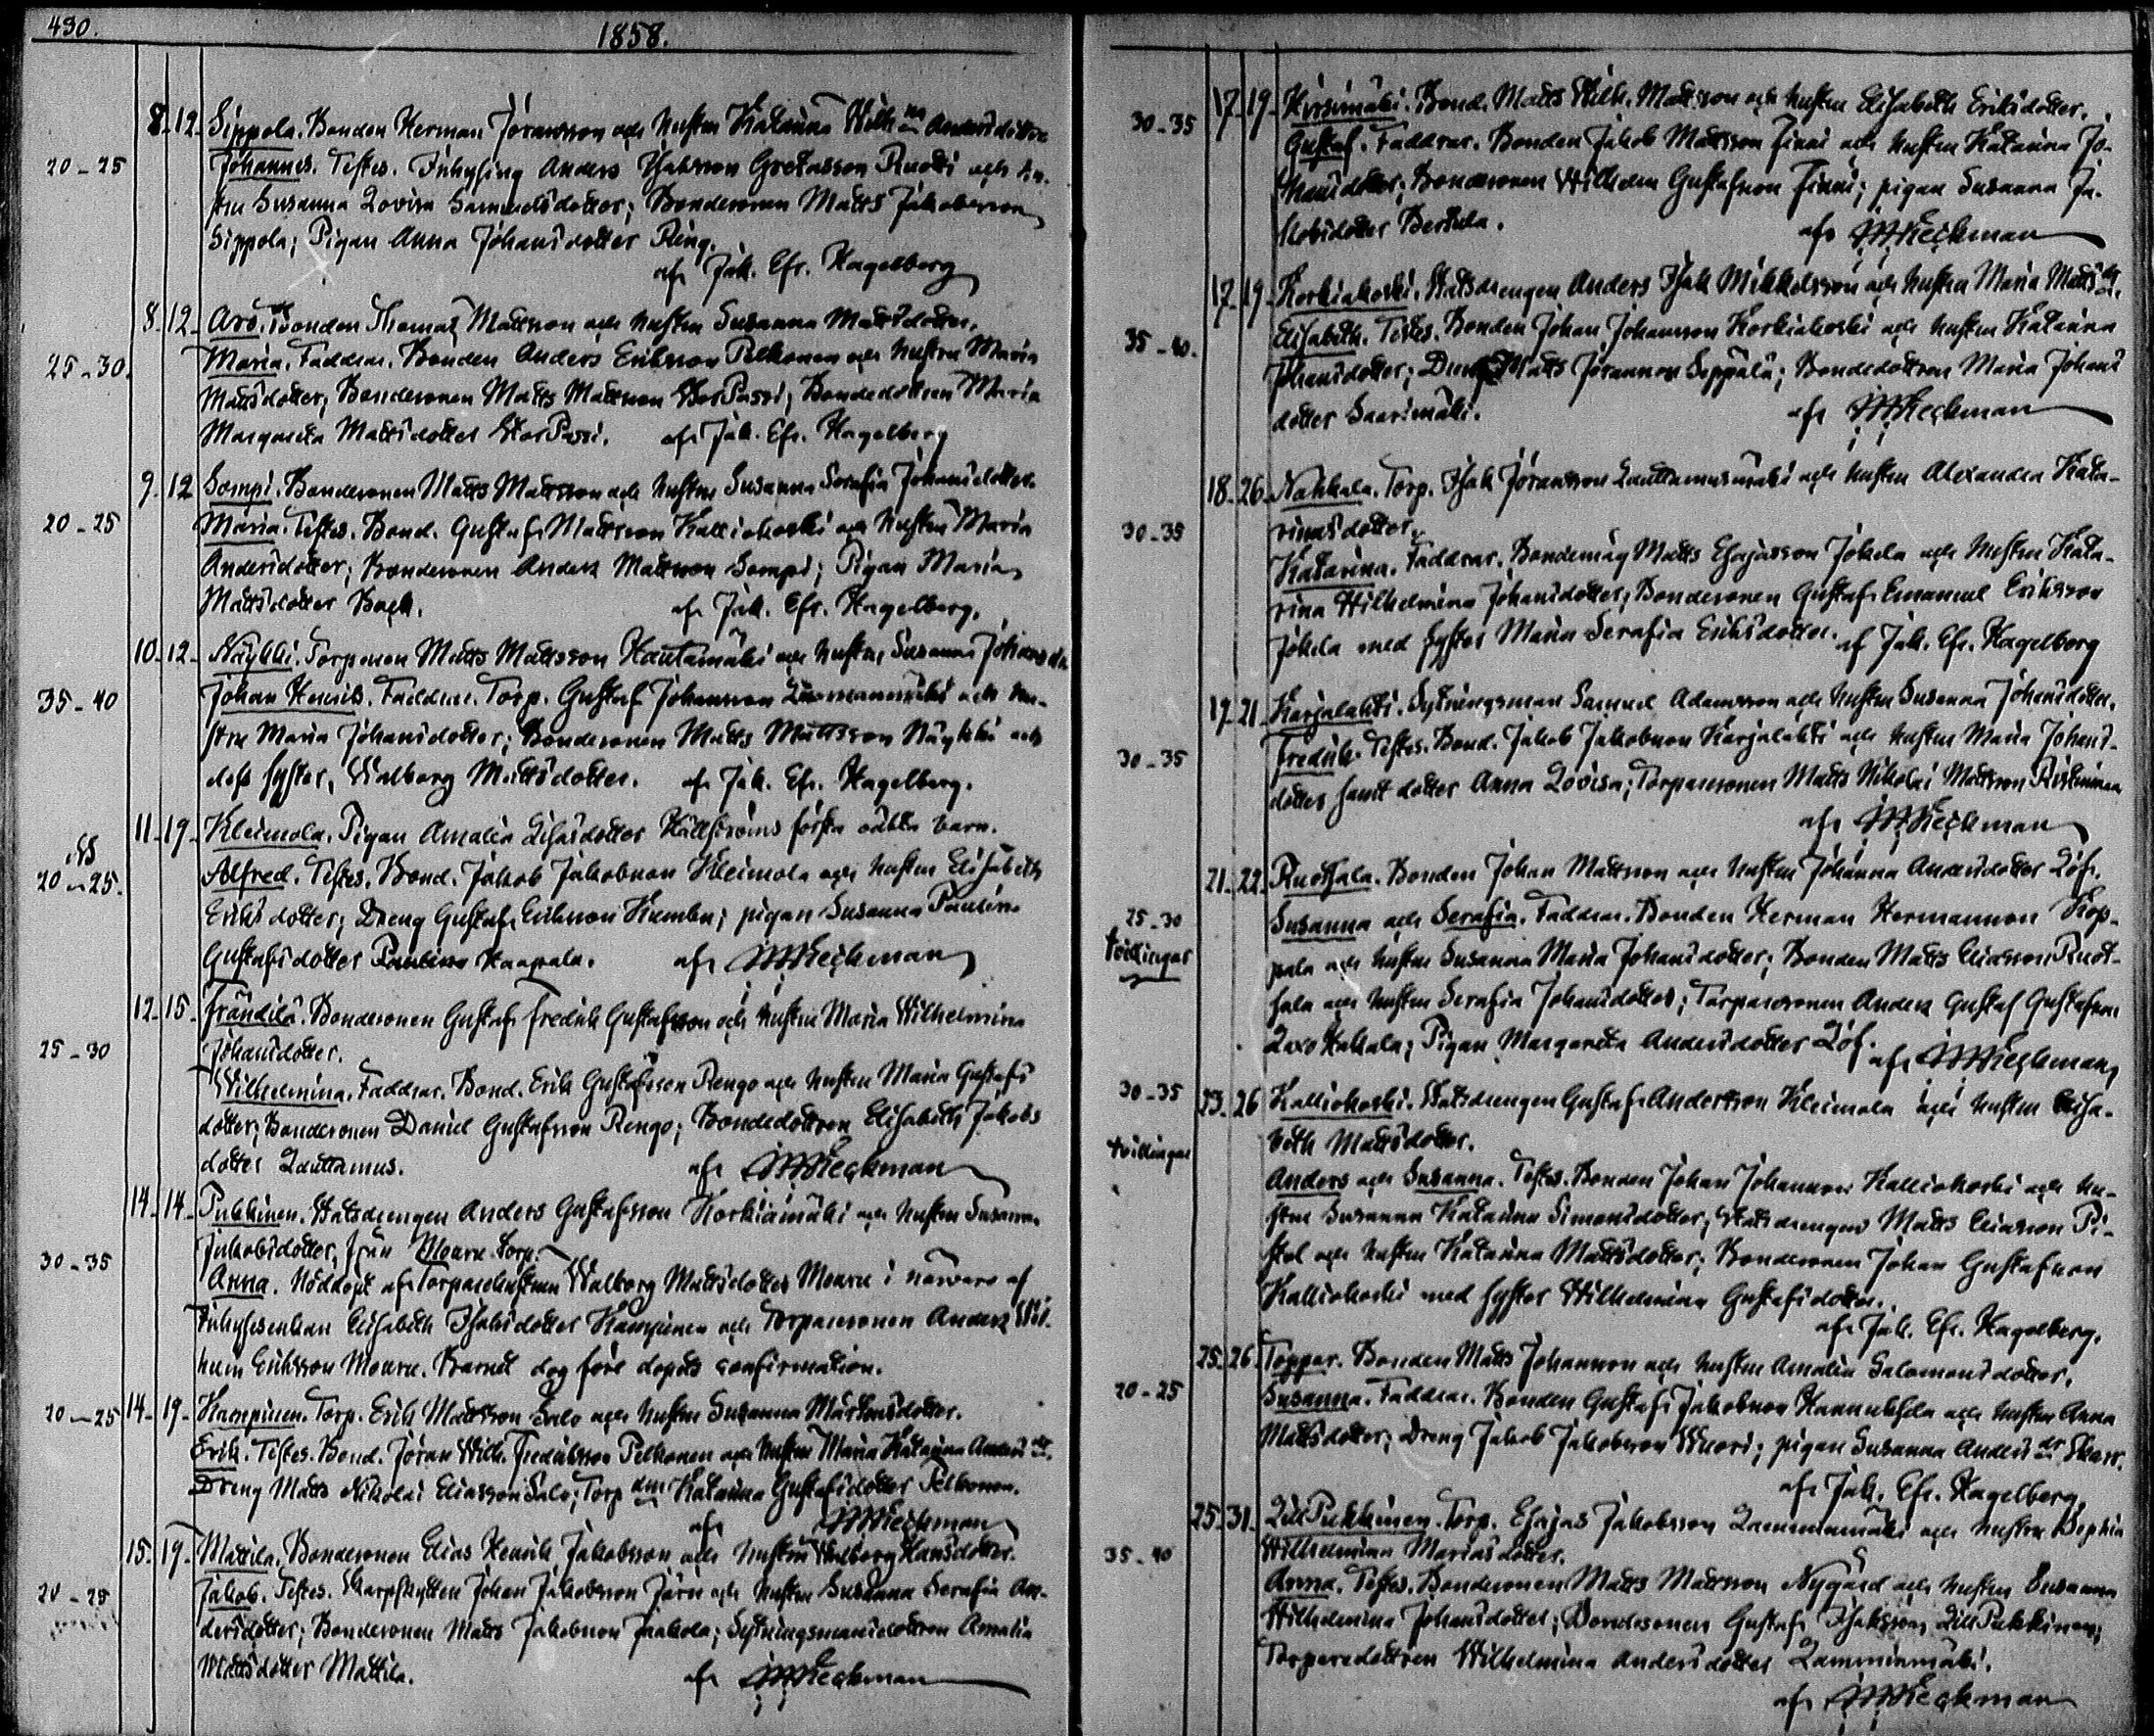 430.
1858.
8. 12. Sippola. Bonden Herman Jöransson och hustru Katarina Wilh.na Andersdotter
20-25 Johannes. Testes. Inhysing Anders Isaksson Ruotti och hu-
stru Susanna Lovisa Samuelsdotter; Bondesonen Matts Jakobsson
Sippola; Pigan Anna Johansdotter Ring.
af Joh. Efr. Hagelberg
8. 12. Aro. Bonden Thomas Mattsson och hustru Susanna Mattsdotter.
25-30. Maria. Faddrar. Bonden Anders Eriksson Pelkonen och hustru Maria
Mattsdotter; Bondesonen Matts Mattsson StorPassi; Bondedottren Maria
Margareta Mattsdotter StorPassi. af Joh. Efr. Hagelberg
9. 12 Sompi. Bondesonen Matts Mattsson och hustru Susanna Serafia Johansdotter.
20-25 Maria. Testes. Bond. Gustaf Mattsson Kalliokoski och hustru Maria
Andersdotter; Bondesonen Anders Mattsson Sompi; Pigan Maria
Mattsdotter Back. af Joh. Efr. Hagelberg.
10. 12. Näykki. Torparen Matts Mattsson Hautamäki och hustru Susanna Johansdr
35-40 Johan Henrik. Faddrar. Torp. Gustaf Johansson och hu-
stru Maria Johansdotter; Bondesonen Matts Mattsson Näykki och
dess syster, Walborg Mattsdotter. af Joh. Efr. Hagelberg.
11. 19. Kleimola. Pigan Amalia Lisasdotter Källströms första oäkta barn.
20-25. Alfred. Testes. Bond. Jakob Jakobsson Kleimola och hustru Elisabeth
Eriksdotter; Dreng Gustaf Eriksson; pigan Susanna Paulina
Gustafsdotter Paulina Haapala. af Wieckman
12. 15. Frändilä. Bondesonen Gustaf Fredrik Gustafsson och hustru Maria Wilhelmina
25-30 Johansdotter.
Wilhelmina. Faddrar. Bond. Erik Gustafsson Rengo och hustru Maria Gustafs
dotter; Bondesonen Daniel Gustafsson Rengo; Bondedottren Elisabeth Jakobs
dotter Lauttamus. af Wieckman
14. 14. Pukkinen. Statsdrengen Anders Gustafsson Korkiamäki och hustru Susanna
30-35 Jakobsdotter, från Mouru Torp.
Anna. Nöddöpt af Torparehustrun Walborg Mattsdotter Mouru i närvaro af
Inhyseskan Elisabeth Isaksdotter Kampinen och Torparesonen Anders Wil-
helm Eriksson Mouru. Barnet dog före dopets confirmation.
20-25 14. 19. Kampinen. Torp. Erik Mattsson Salo och hustru Susanna Mårtensdotter.
Erik. Testes. Bond. Jöran Wilh. Fredriksson Pelkonen och hustru Maria Katarina Anders dr.
Dreng Matts Nikolai Eliasson Salo; Torp. Katarina Gustafsdotter Pelkonen.
af Wieckman
15. 19. Mattila. Bondesonen Elias Henrik Jakobsson och hustru Walborg Hansdotter.
20-25 Jakob. Testes. Skarpskytten Johan Jakobsson Järn och hustru Susanna Serafia An-
dersdotter; Bondesonen Matts Jakobsson Jaakola; Sytningsmansdottren Amalia
Mattsdotter Mattila. af Wieckman
17. 19. Kirsimäki. Bond. Matts Wilh. Mattsson och hustru Elisabeth Eriksdotter.
30-35 Gustaf. Faddrar. Bonden Jakob Mattsson Finni och hustru Katarina Jo-
hansdotter; Bondesonen Wilhelm Gustafsson Finni; pigan Susanna Ja-
kobsdotter Bertula.
af Wieckman
17. 19. Korkiakoski. Statsdrengen Anders Isak Mikkelsson och hustru Maria Mattsdr.
35-40. Elisabeth. Testes. Bonden Johan Johansson Korkiakoski och hustru Katarina
Johansdotter; Dreng Matts Jöransson Seppälä; Bondedottren Maria Johans
dotter Saarimäki. af Wieckman
18. 26. Nahkala. Torp. Isak Jöransson Lauttamusmäki och hustru Alexandra Kata-
30-35 rinasdotter.
Katarina. Faddrar. Bondemåg Matts Esajasson Jokela och hustru Kata-
rina Wilhelmina Johansdotter; Bondesonen Gustaf Emanuel Eriksson
Jokela med syster Maria Serafia Eriksdotter. af Joh. Efr. Hagelberg
19. 21. Karjalahti. Sytningsman Samuel Adamsson och hustru Susanna Johansdotter.
30-35 Fredrik. Testes. Bond. Jakob Jakobsson Karjalahti och hustru Maria Johans-
dotter samt dotter Anna Lovisa; Torparesonen Matts Nikolai Mattsson
af Wieckman
21. 22. Ruotsala. Bonden Johan Mattsson och hustru Johanna Andersdotter Löf.
25-30 Susanna och Serafia. Faddrar. Bonden Herman Hermansson Kop-
tvillingar pala och hustru Susanna Maria Johansdotter; Bonden Matts Eliasson Ruot-
sala och hustru Serafia Johansdotter; Torparesonen Anders Gustaf Gustafsson
Laxo Hakala; Pigan Margareta Andersdotter Löf.
af Wieckman
30-35 23. 26 Kalliokoski. Statsdrengen Gustaf Andersson Kleimola och hustru Elisa-
tvillingar beth Mattsdotter.
Anders och Susanna. Testes. Bonden Johan Johansson Kalliokoski och hu-
stru Susanna Katarina Simonsdotter; Statsdrengen Matts Eliasson Pi-
stol och hustru Katarina Mattsdotter; Bondesonen Johan Gustafsson
Kalliokoski med syster Wilhelmina Gustafsdotter.
af Joh. Efr. Hagelberg.
25. 26. Toppar. Bonden Matts Johansson och hustru Amalia Salomonsdotter.
20-25 Susanna. Faddrar. Bonden Gustaf Jakobsson Hannuksela och hustru Anna
Mattsdotter; Dreng Jakob Jakobsson Wuori; pigan Susanna Anders dr Skarp.
af Joh. Efr. Hagelberg
25. 31. LillPukkinen. Torp. Esajas Jakobsson Lamminmäki och hustru Sophia
35-40 Wilhelmina Mariasdotter.
Anna. Testes. Bondesonen Matts Mattsson Nygård och hustru Susanna
Wilhelmina Johansdotter; Bondesonen Gustaf Isaksson LillPukkinen;
Torparedottren Wilhelmina Andersdotter Lamminmäki.
af Wieckman